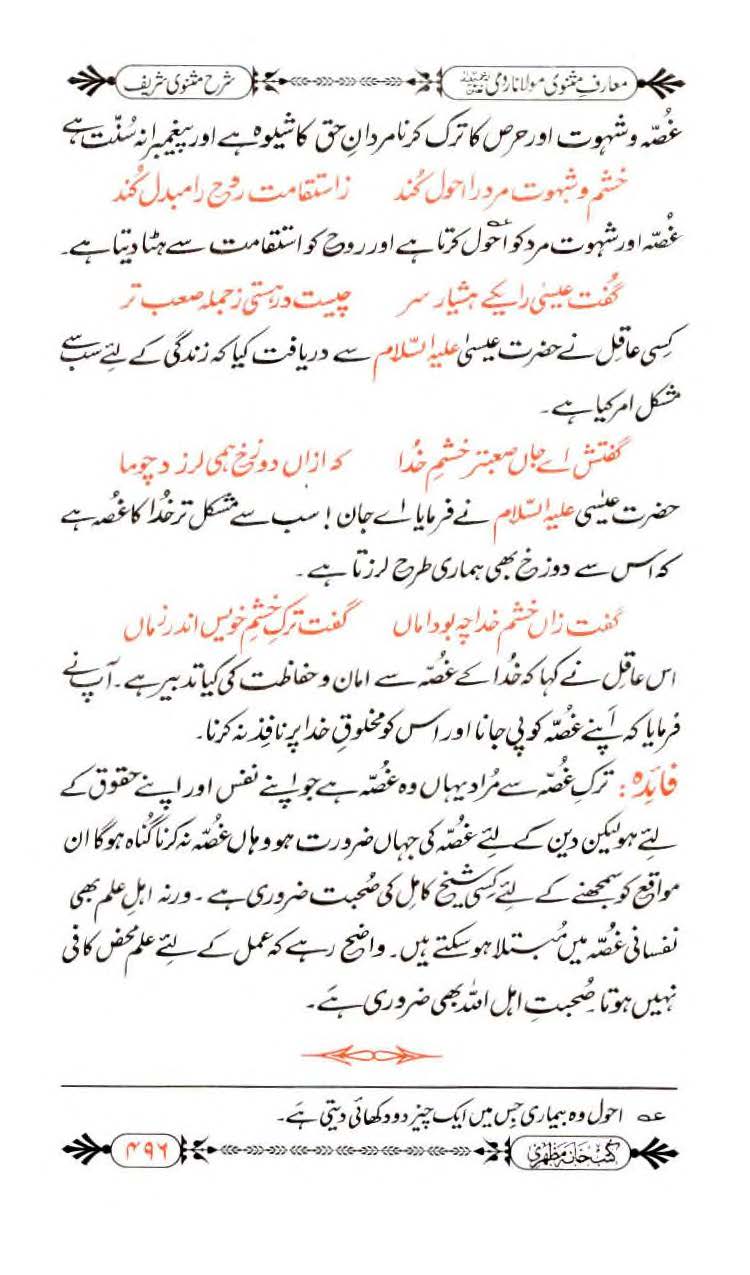 معارفِ مثنوی مولانا رومی رحمۃ اللہ علیہ
شرح مثنوی شریف
غُصّہ و شہوت اور حرص کا ترک کرنا مردانِ حق کا شیوہ ہے اور پیغمبرانہ سُنّت ہے
خشم و شہوت مرد را احول کُند    ز استقامت روح را مبدل کُند
غُصّہ اور شہوت مرد کو احْوَل؏ کرتا ہے اور روح کو استقامت سے ہٹا دیتا ہے۔
گُفت عیسٰی را یکے ہشیار سر    چیست در ہستی ز جملہ صعب تر
کِسی عاقِل نے حضرت عیسیٰ علیہ السّلام سے دریافت کیا کہ زندگی کے لئے سب سے
مشکل امر کیا ہے۔
گفتش اے جاں صعبتر خشمِ خُدا    کہ ازاں دوزخ ہمی لرزد چو ما
حضرت عیسٰی علیہ السّلام نے فرمایا اے جان! سب سے مشکل تر خُدا کا غُصہ ہے
کہ اس سے دوزخ بھی ہماری طرح لرزتا ہے۔
گفت زاں خشم خدا چہ بود اماں    گفت ترکِ خشمِ خویس اندر زماں
اس عاقِل نے کہا کہ خُدا کے غُصّہ سے امان و حفاظت کی کیا تدبیر ہے۔ آپ نے
فرمایا کہ اَپنے غُصّہ کو پی جانا اور اس کو مخلوقِ خدا پر نافِذ نہ کرنا۔
فائِدہ: ترکِ غُصّہ سے مُراد یہاں وہ غُصّہ ہے جو اپنے نفس اور اپنے حقوق کے
لئے ہو لیکن دین کے لئے غُصّہ کی جہاں ضرورت ہو وہاں غُصّہ نہ کرنا گُناہ ہوگا ان
مواقع کو سمجھنے کے لئے کِسی شیخِ کامِل کی صُحبت ضروری ہے۔ ورنہ اہلِ علم بھی
نفسانی غُصّہ میں مُبتلا ہو سکتے ہیں۔ واضح رہے کہ عمل کے لئے علم محض کافی
نہیں ہوتا۔ صُحبتِ اہل اللہ بھی ضروری ہے۔
؏ احول وہ بیماری جِس میں ایک چیز دو دکھائی دیتی ہَے۔
کتب خانہ مظہری
۴۹۶